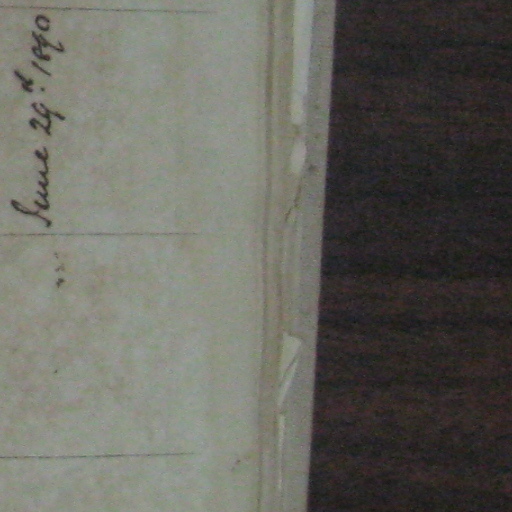 June 29th. 1890